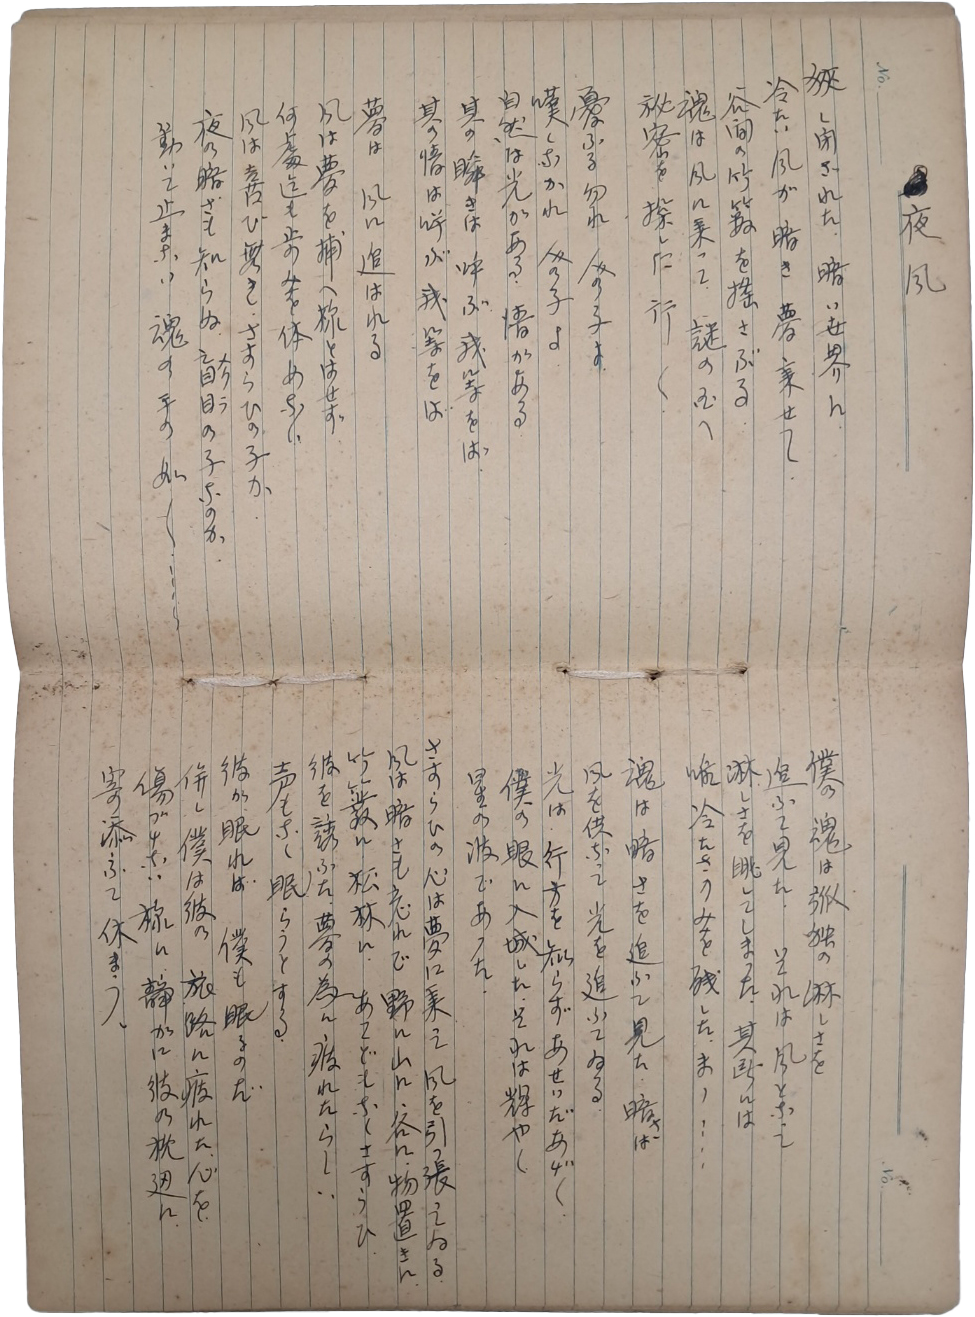 夜風
狭し閉された、暗い世界に
冷たい風が暗き夢乗せて
谷間の竹籔を揺さぶる
魂は風に乗って、謎の国へ
秘密を探しに行く
憂ふる勿れ 人の子よ
嘆くなかれ 人の子よ
自然は光がある 情がある
其の瞬きは呼ぶ我等をば、
其の情は呼ぶ我等をば
夢は 風に追はれる
風は夢を捕へ様とはせず、
何處迄も歩みを休めない
風は喜び無き、さすらひの子か、
夜の暗さも知らぬ、盲目の子なのか、
動いて止まない魂の手の如く……
僕の魂は孤独の淋しさを
追ふて見た、それは風となって
淋しさを眺してしまった、其処には
唯冷たさのみを残した、まゝ……
魂は暗さを追ふて見た、暗さは
風を伴なって光を追ふてゐる
光は行方を知らずあせいだあげく
僕の眼に入城した、それは輝やく
星の波であった、
さすらひの心は夢に乗って風を引っ張ってゐる
風は暗さも忘れて野に山に、谷に、物置きに、
竹籔に松林に、あてどもなくさすらひ、
彼を誘ふた、夢の為に疲れたらしい
声もなく眠らうとする
彼が眠れば 僕も眠るのだ
併し僕は彼の旅路に疲れた、心を
傷つけない様に、静かに彼の枕辺に
寄り添ふて休まう、
No.
No.